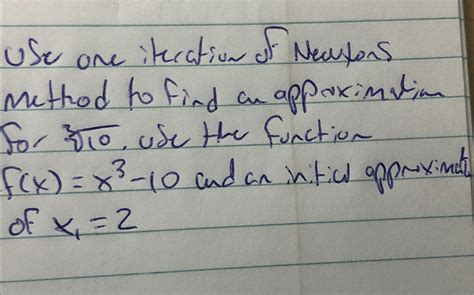 Use one iteration of Newtons
method to find an approximation
for ∛10. use the function
f(x) = x³-10 and an initial approximate
of x₁ = 2